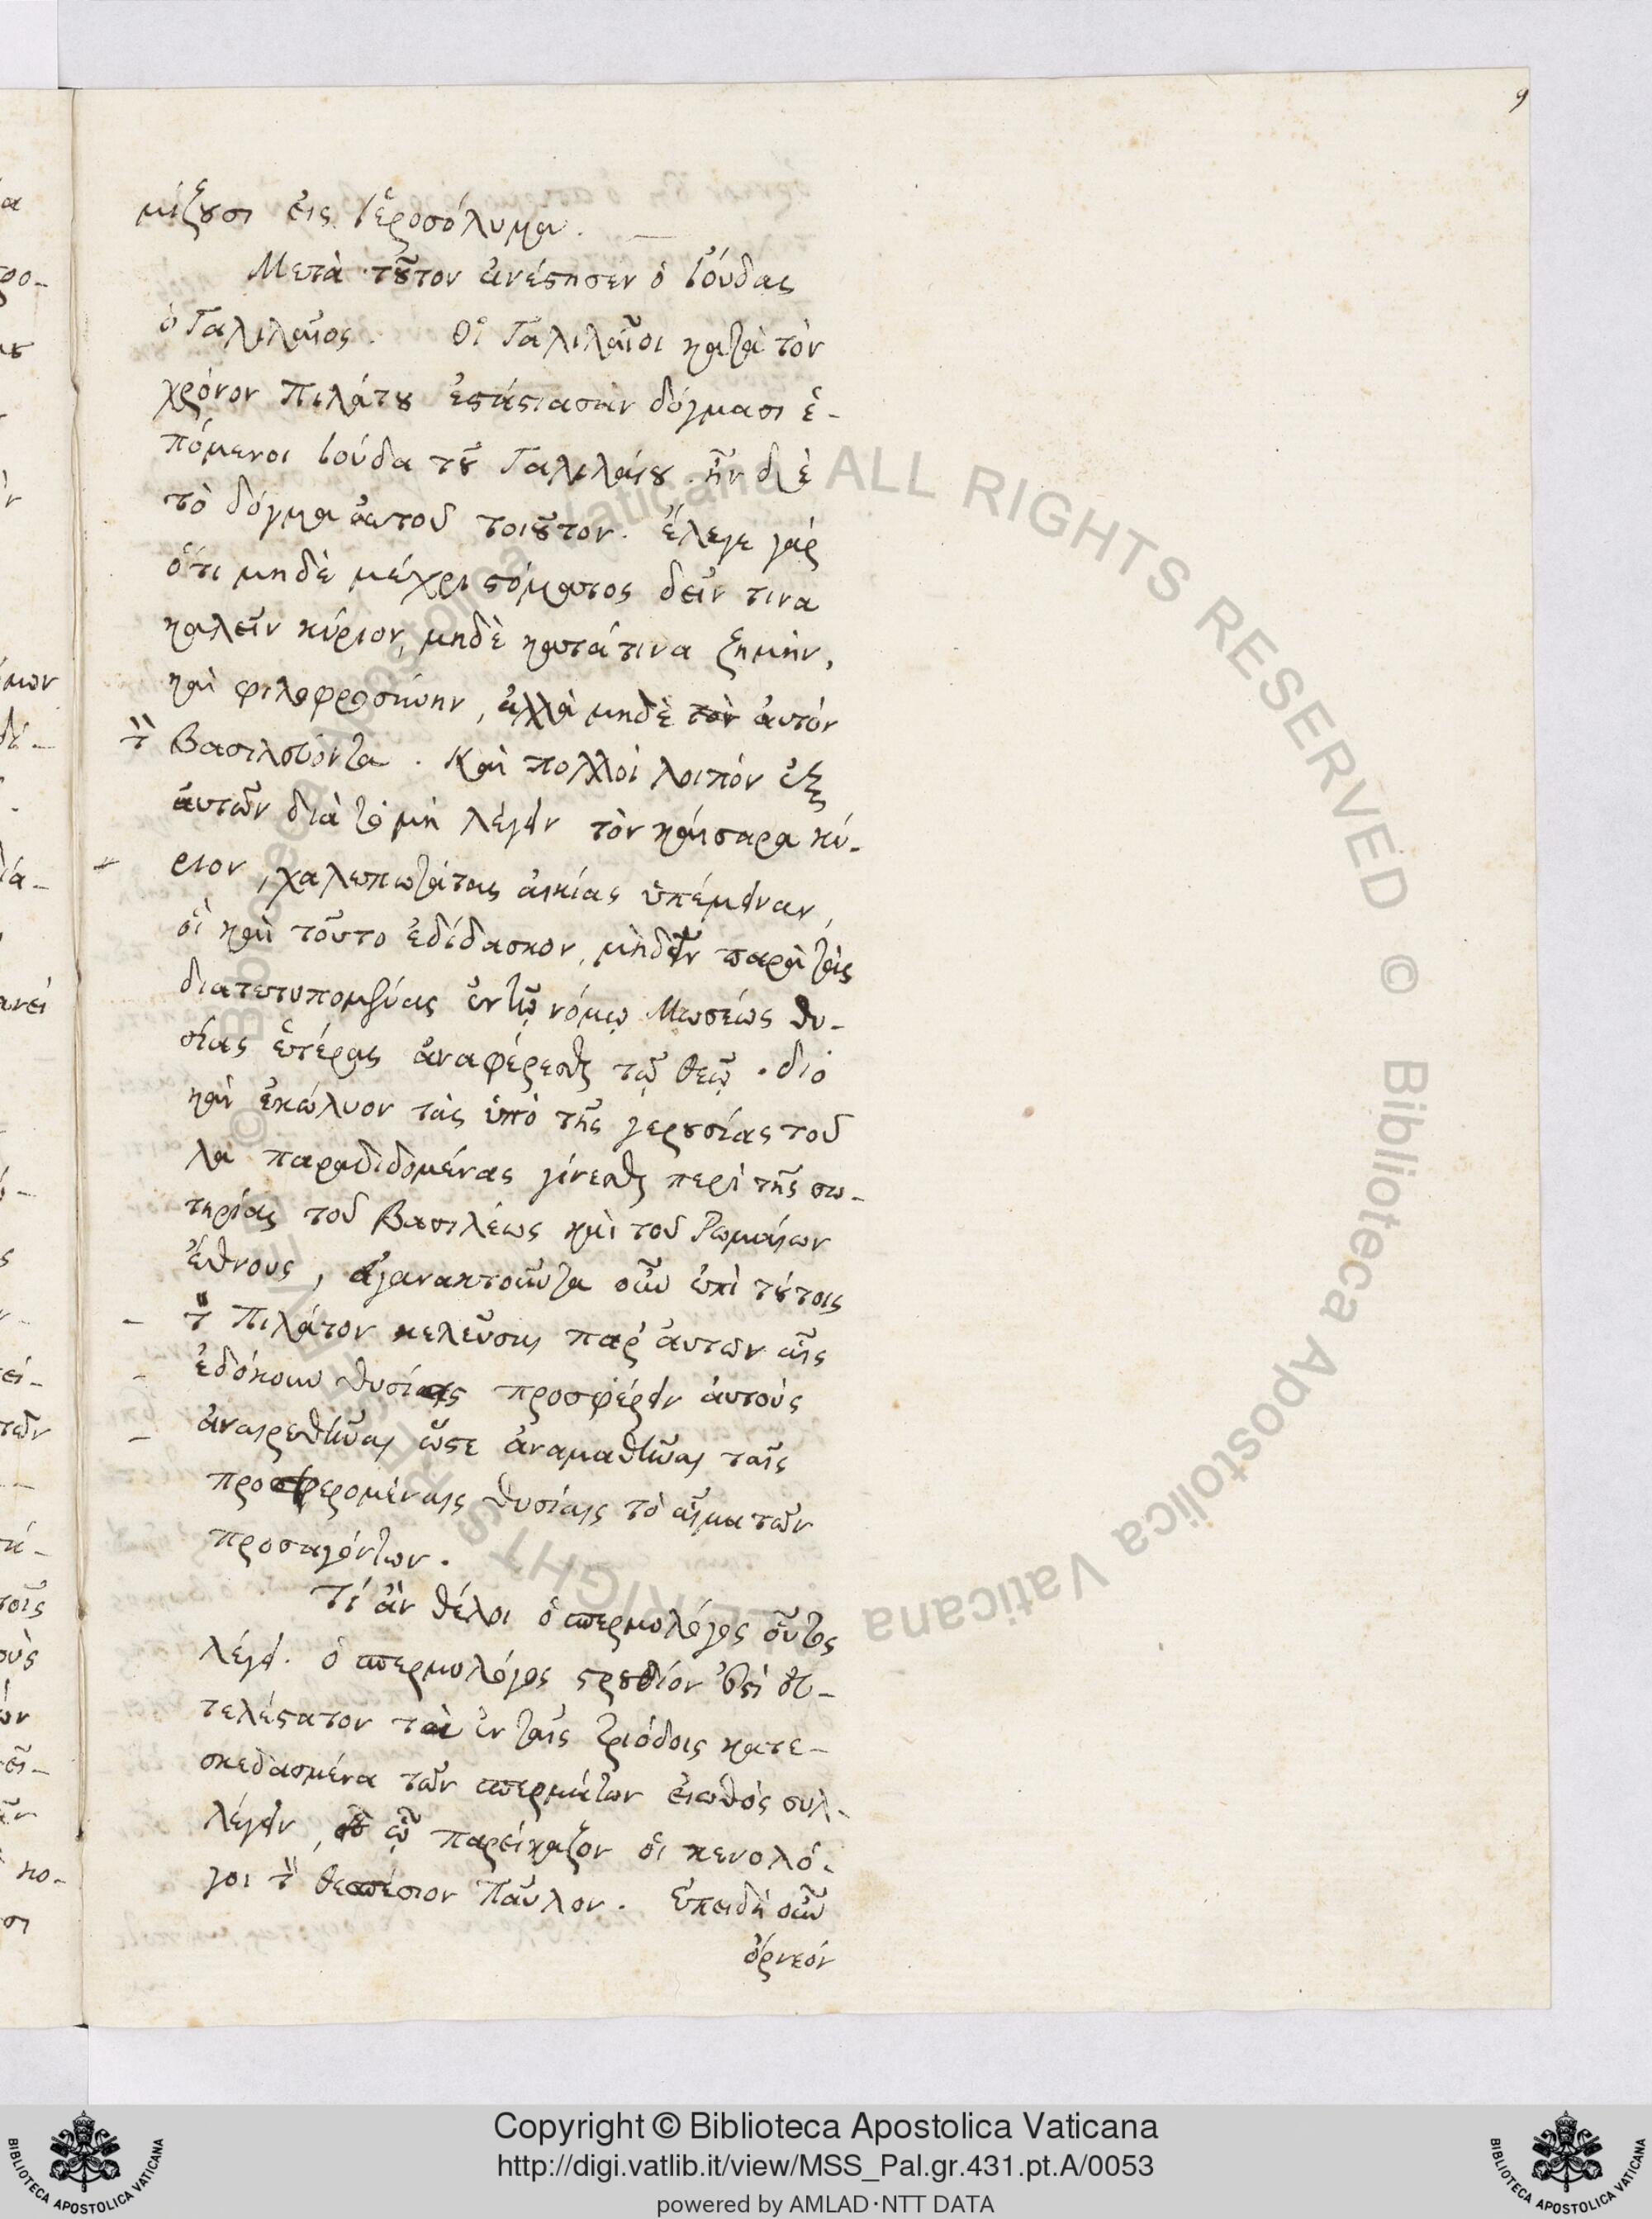 9
μίζουσι εἰς Ἱεροσόλυμα.
Μετὰ τοῦτον ἀνέστησεν ὁ Ἰούδας
ὁ Γαλιλαῖος. Οἱ Γαλιλαῖοι κατὰ τὸν
χρόνον Πιλάτου ἐστάσιασαν δόγμασι ἑ-
πόμενοι Ἰούδα τοῦ Γαλιλαίου. ἦν δὲ
τὸ δόγμα αὐτοῦ τοιοῦτον. ἔλεγε γάρ
ὅτι μηδὲ μέχρι στόματος δεῖν τινα
καλεῖν κύριον, μηδὲ κατά τινα ζημὴν,
καὶ φιλοφροσύνην, ἀλλὰ μηδὲ τὸν αὐτόν
τ̀ Βασιλεύοντα. Καὶ πολλοὶ λοιπόν ἐξ
αὐτῶν διὰ τὸ μὴ λέγειν τὸν καίσαρα κύ-
ριον, χαλεπωτάτας αἰκίας ὑπέμειναν,
οἳ καὶ τοῦτο ἐδίδασκον, μὴ δεῖν παρὰ τὰς
διατετυπομένας ἐν τῷ νόμῳ Μωσέως θυ-
σίας ἑτέρας ἀναφέρεσθαι τῷ θεῷ. διὸ
καὶ ἐκώλυον τὰς ὑπὸ τῆς γερουσίας τοῦ
λα παραδιδομένας γίνεσθαι περὶ τῆς σω-
τηρίας τοῦ Βασιλέως καὶ τοῦ Ρωμαίων
ἔθνους, ἀγανακτοῦντα οὖν ἐπὶ τούτοις
τ̀ Πιλάτον κελεῦσαι παρ' αὐτων αἷς
ἐδόκουν θυσίας προσφέρειν αὐτοὺς
ἀναιρεθῆναι ὥστε ἀναμαθῆναι ταῖς
προσφερομέναις θυσίαις τὸ αἷμα τῶν
προσαγόντων.
Τί ἂν θέλοι ὁ σπερμολόγος οὗτος
λέγειν. ὁ σπερμολόγος στρουθίον ἐστὶ εὐ-
τελέστατον τὰ ἐν ταῖς τριόδοις κατε-
σκεδασμένα τῶν σπερμάτων εἰωθὸς συλ-
λέγειν, ᾧ παρείκαζον οἱ κενολό-
γοι τ̀ θεσπέσιον Παῦλον. Ἐπειδὴ οὖν
ὄρνεόν
Copyright © Biblioteca Apostolica Vaticana
http://digi.vatlib.it/view/MSS_Pal.gr.431.pt.A/0053
powered by AMLAD·NTT DATA